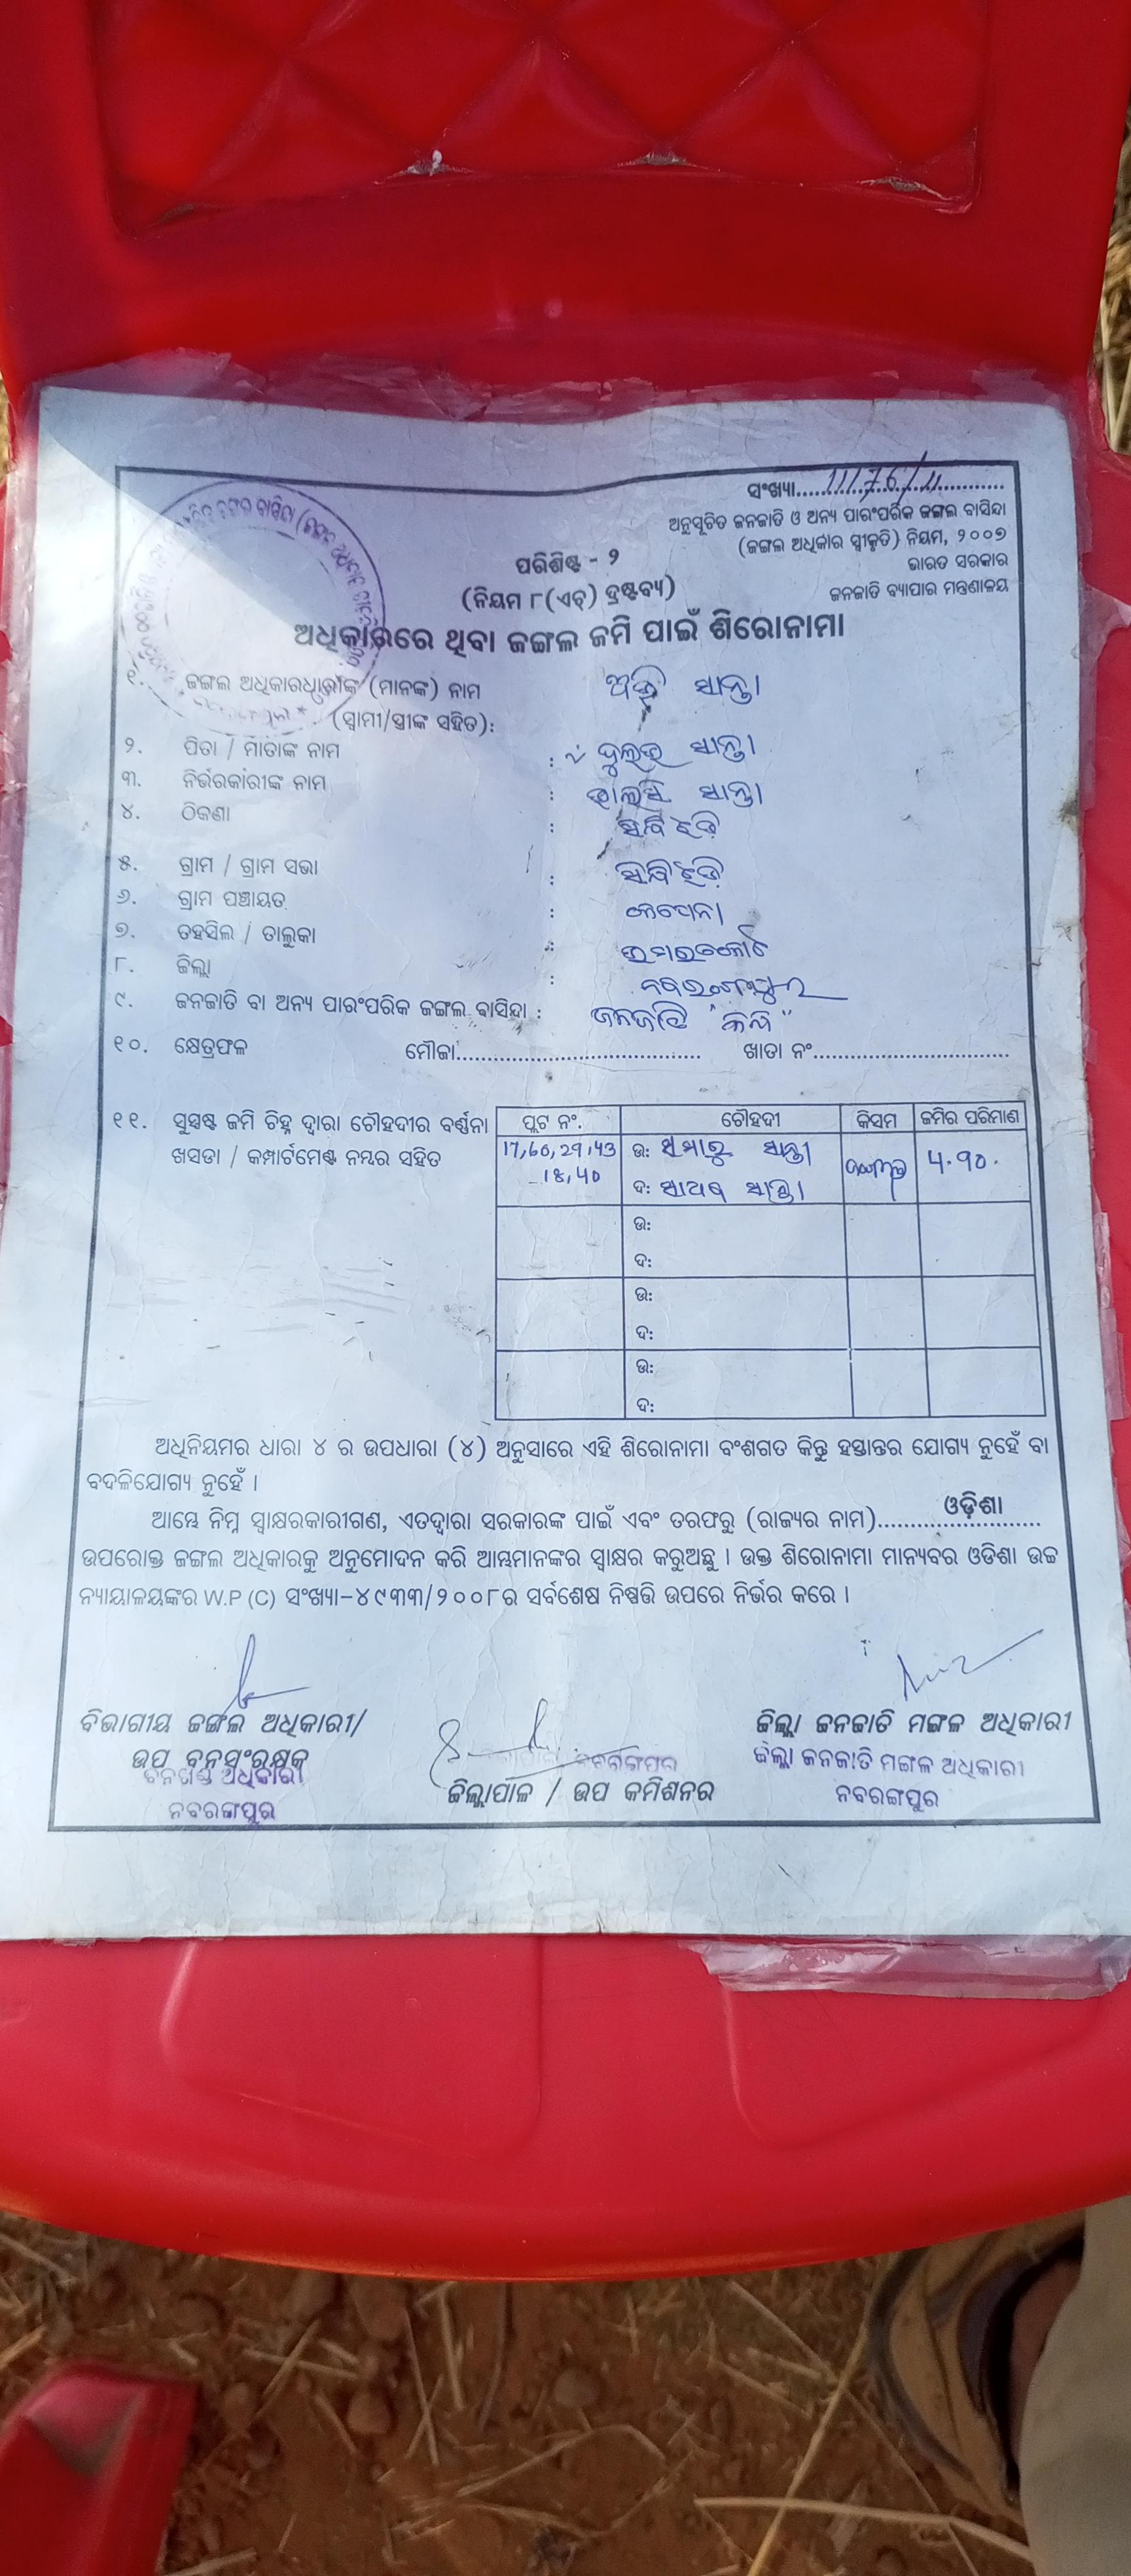 ସଂଖ୍ୟା..........11/76/11..........
ଅନୁସୂଚିତ ଜନଜାତି ଓ ଅନ୍ୟ ପାରଂପରିକ ଜଙ୍ଗଲ ବାସିନ୍ଦା
(ଜଙ୍ଗଲ ଅଧିକାର ସ୍ୱୀକୃତି) ନିୟମ, ୨୦୦୭
ଭାରତ ସରକାର
ଜନଜାତି ବ୍ୟାପାର ମନ୍ତ୍ରଣାଳୟ
ପରିଶିଷ୍ଟ - ୨
(ନିୟମ ୮(ଏଚ୍) ଦ୍ରଷ୍ଟବ୍ୟ)
ଅଧିକାରରେ ଥିବା ଜଙ୍ଗଲ ଜମି ପାଇଁ ଶିରୋନାମା
୧. ଜଙ୍ଗଲ ଅଧିକାରଧାରୀଙ୍କ (ମାନଙ୍କ) ନାମ ସାନ୍ତା
(ସ୍ୱାମୀ/ସ୍ତ୍ରୀଙ୍କ ସହିତ):
୨. ପିତା / ମାତାଙ୍କ ନାମ : ସାନ୍ତା
୩. ନିର୍ଭରକାରୀଙ୍କ ନାମ : ସାନ୍ତା
୪. ଠିକଣା :
୫. ଗ୍ରାମ / ଗ୍ରାମ ସଭା :
୬. ଗ୍ରାମ ପଞ୍ଚାୟତ :
୭. ତହସିଲ / ତାଲୁକା : ଉମରକୋଟ
୮. ଜିଲ୍ଲା : ନବରଂଗପୁର
୯. ଜନଜାତି ବା ଅନ୍ୟ ପାରଂପରିକ ଜଙ୍ଗଲ ବାସିନ୍ଦା : ଜନଜାତି
୧୦. କ୍ଷେତ୍ରଫଳ ମୌଜା.................... ଖାତା ନଂ....................
୧୧. ସୁସ୍ପଷ୍ଟ ଜମି ଚିହ୍ନ ଦ୍ୱାରା ଚୌହଦୀର ବର୍ଣ୍ଣନା
ଖସଡା / କମ୍ପାର୍ଟମେଣ୍ଟ ନମ୍ବର ସହିତ
ପ୍ଲଟ ନଂ. ଚୌହଦୀ କିସମ ଜମିର ପରିମାଣ
17,60,29,43 ଉ: ସାନ୍ତା 4.90.
18,40 ଦ: ସାନ୍ତା
ଉ:
ଦ:
ଉ:
ଦ:
ଉ:
ଦ:
ଅଧିନିୟମର ଧାରା ୪ ର ଉପଧାରା (୪) ଅନୁସାରେ ଏହି ଶିରୋନାମା ବଂଶଗତ କିନ୍ତୁ ହସ୍ତାନ୍ତର ଯୋଗ୍ୟ ନୁହେଁ ବା
ବଦଳିଯୋଗ୍ୟ ନୁହେଁ ।
ଆମ୍ଭେ ନିମ୍ନ ସ୍ୱାକ୍ଷରକାରୀଗଣ, ଏତଦ୍ୱାରା ସରକାରଙ୍କ ପାଇଁ ଏବଂ ତରଫରୁ (ରାଜ୍ୟର ନାମ)........ଓଡ଼ିଶା........
ଉପରୋକ୍ତ ଜଙ୍ଗଲ ଅଧିକାରକୁ ଅନୁମୋଦନ କରି ଆମ୍ଭମାନଙ୍କର ସ୍ୱାକ୍ଷର କରୁଅଛୁ । ଉକ୍ତ ଶିରୋନାମା ମାନ୍ୟବର ଓଡିଶା ଉଚ୍ଚ
ନ୍ୟାୟାଳୟଙ୍କର W.P (C) ସଂଖ୍ୟା-୪୯୩୩/୨୦୦୮ର ସର୍ବଶେଷ ନିଷ୍ପତ୍ତି ଉପରେ ନିର୍ଭର କରେ ।
ବିଭାଗୀୟ ଜଙ୍ଗଲ ଅଧିକାରୀ/
ଉପ ବନସଂରକ୍ଷକ
ବନଖଣ୍ଡ ଅଧିକାରୀ
ନବରଙ୍ଗପୁର
ନବରଙ୍ଗପୁର
ଜିଲ୍ଲାପାଳ / ଉପ କମିଶନର
ଜିଲ୍ଲା ଜନଜାତି ମଙ୍ଗଳ ଅଧିକାରୀ
ଜିଲ୍ଲା ଜନଜାତି ମଙ୍ଗଳ ଅଧିକାରୀ
ନବରଙ୍ଗପୁର